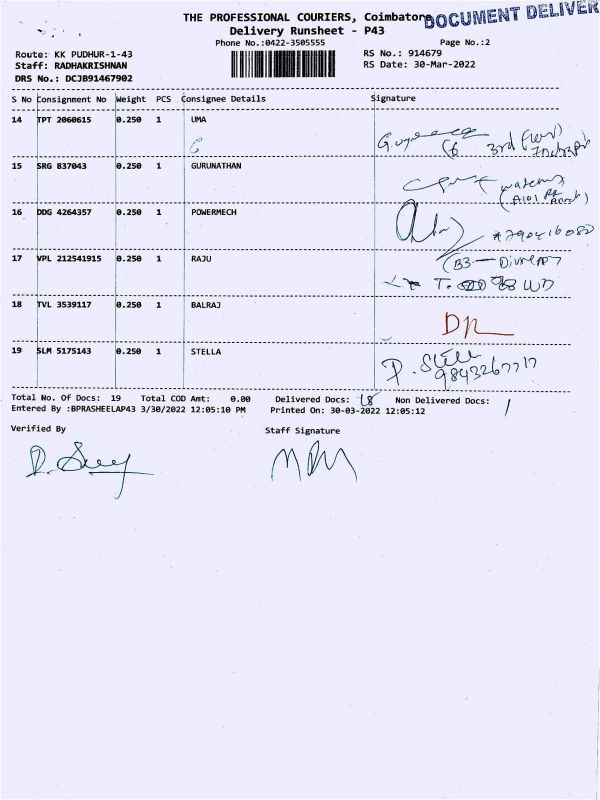 THE PROFESSIONAL COURIERS, Coimbatore
DOCUMENT DELIVER
Delivery Runsheet - P43
Phone No.:0422-3505555 Page No.:2
Route: KK PUDHUR-1-43 RS No.: 914679
Staff: RADHAKRISHNAN RS Date: 30-Mar-2022
DRS No.: DCJB91467902
S No Consignment No Weight PCS Consignee Details Signature
14 TPT 2060615 0.250 1 UMA
3rd
15 SRG 837043 0.250 1 GURUNATHAN
16 DDG 4264357 0.250 1 POWERMECH
17 VPL 212541915 0.250 1 RAJU
18 TVL 3539117 0.250 1 BALRAJ
DR
19 SLM 5175143 0.250 1 STELLA
P. Stella
9843267717
Total No. Of Docs: 19 Total COD Amt: 0.00 Delivered Docs: 18 Non Delivered Docs: 1
Entered By :BPRASHEELAP43 3/30/2022 12:05:10 PM Printed On: 30-03-2022 12:05:12
Verified By Staff Signature